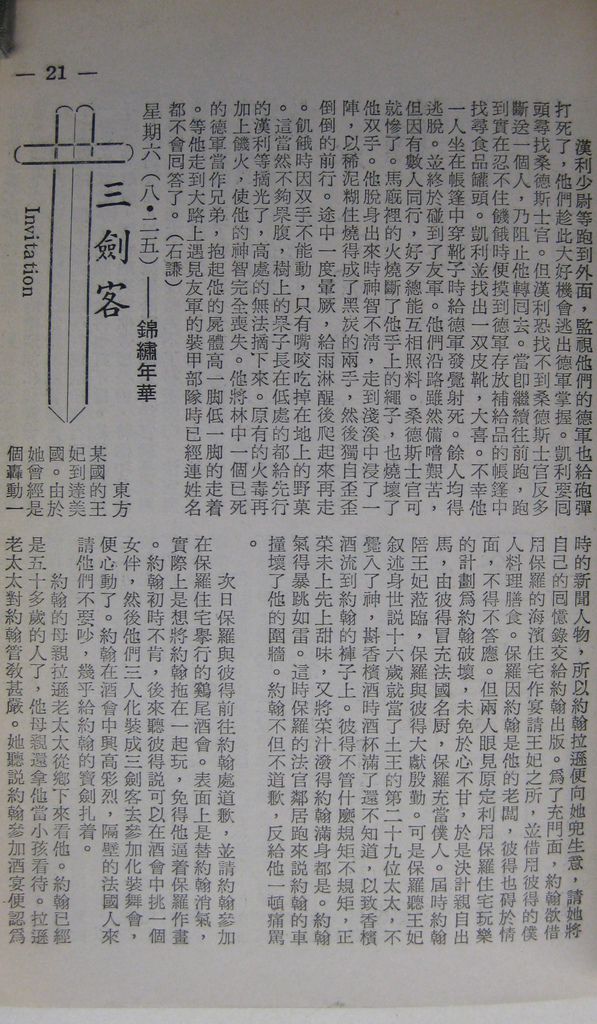 — 21 —
漢利少尉等跑到外面，監視他們的德軍也給砲彈
打死了，他們趁此大好機會逃出德軍掌握。凱利要同
頭尋找桑德斯士官。但漢利恐找不到桑德斯士官反多
斷送一個人，乃阻止他轉回去。當即繼續往前跑，跑
到實在忍不住饑餓時便摸到德軍存放補給品的帳篷中
找尋食品罐頭。凱利並找出一双皮靴，大喜。不幸他
一人坐在帳篷中穿靴子時給德軍發覺射死。餘人均得
逃脫。並終於碰到了友軍。他們沿路雖然備嚐艱苦，
但因有數人同行，好歹總能互相照料。桑德斯士官可
就慘了。馬廐裡的火燒斷了他手上的繩子，也燒壞了
他双手。他脫身出來時神智不清，走到淺溪中浸了一
陣，以稀泥糊住燒得成了黑炭的兩手，然後獨自歪歪
倒倒的前行。途中一度暈厥，給雨淋醒後爬起來再走
。飢餓時因双手不能動，只有嘴咬吃掉在地上的野菓
。這當然不夠果腹，樹上的菓子長在低處的都給先行
的漢利等摘光了，高處的無法摘下來。原有的火毒再
加上饑火，使他的神智完全喪失。他將林中一個已死
的德軍當作兄弟，抱起他的屍體高一脚低一脚的走着
。等他走到大路上遇見友軍的裝甲部隊時已經連姓名
都不會回答了。（石謙）
星期六（八·二五）——錦繡年華
三劍客
Invitation
東方
某國的王
妃到達美
國。由於
她曾經是
個轟動一
時的新聞人物，所以約翰拉遜便向她兜生意，請她將
自己的回憶錄交給約翰出版。爲了充門面，約翰欲借
用保羅的海濱住宅作宴請王妃之所，並借用彼得的僕
人料理膳食。保羅因約翰是他的老闆，彼得也碍於情
面，不得不答應。但兩人眼見原定利用保羅住宅玩樂
的計劃爲約翰破壞，未免於心不甘，於是決計親自出
馬，由彼得冒充法國名厨，保羅充當僕人。屆時約翰
陪王妃蒞臨，保羅與彼得大獻殷勤。可是保羅聽王妃
叙述身世說十六歲就當了土王的第二十九位太太，不
覺入了神，斟香檳酒時酒杯滿了還不知道，以致香檳
酒流到約翰的褲子上。彼得不管什麼規矩不規矩，正
菜未上先上甜味，又將菜汁潑得約翰滿身都是。約翰
氣得暴跳如雷。這時保羅的法官鄰居跑來說約翰的車
撞壞了他的圍牆。約翰不但不道歉，反給他一頓痛罵
。
次日保羅與彼得前往約翰處道歉，並請約翰參加
在保羅住宅舉行的鷄尾酒會。表面上是替約翰消氣，
實際上是想將約翰拖在一起玩，免得他逼着保羅作畫
。約翰初時不肯，後來聽彼得說可以在酒會中挑一個
女伴，然後他們三人化裝成三劍客去參加化裝舞會，
便心動了。約翰在酒會中興高彩烈，隔壁的法國人來
請他們不要吵，幾乎給約翰的寶劍扎着。
約翰的母親拉遜老太太從鄉下來看他。約翰已經
是五十多歲的人了，他母親還拿他當小孩看待。拉遜
老太太對約翰管教甚嚴。她聽說約翰參加酒宴便認爲